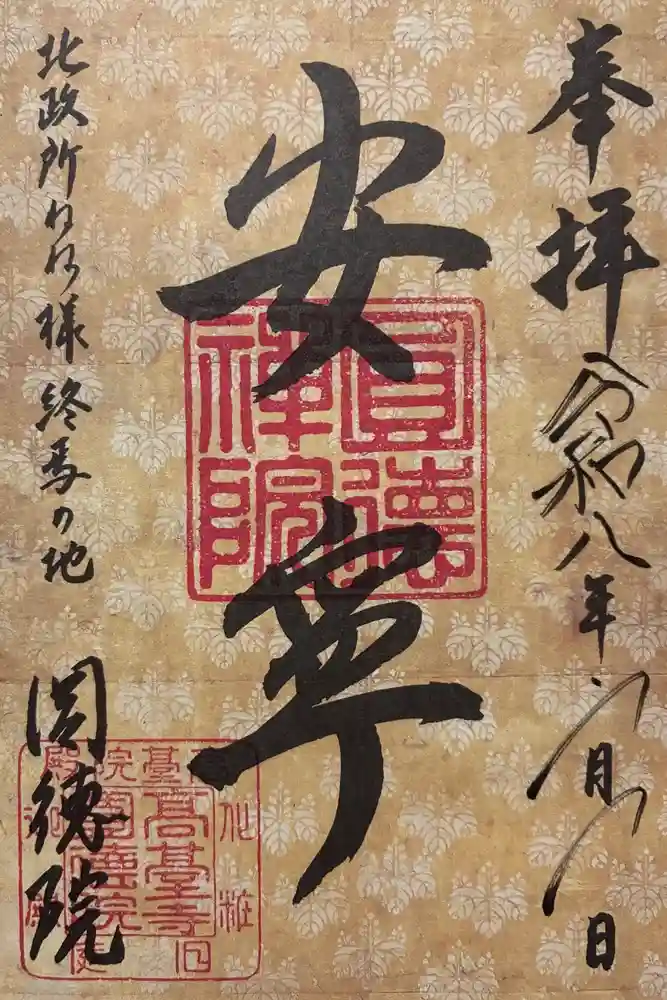 奉拝 令和八年 月 日
安寧
圓德
禪院
北政所ねね様 終焉の地
圓徳院
高臺寺
圓德院
化粧